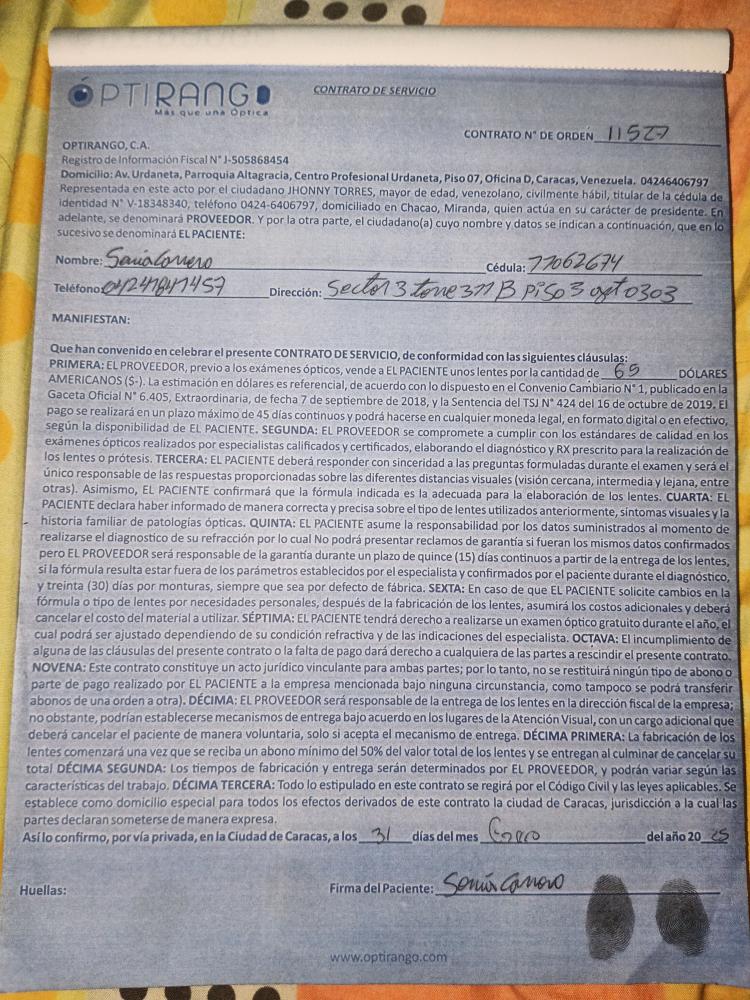 ÓPTIRANGO
Más que una Óptica
CONTRATO DE SERVICIO
CONTRATO N° DE ORDEN 11527
OPTIRANGO, C.A.
Registro de Información Fiscal N° J-505868454
Domicilio: Av. Urdaneta, Parroquia Altagracia, Centro Profesional Urdaneta, Piso 07, Oficina D, Caracas, Venezuela. 04246406797
Representada en este acto por el ciudadano JHONNY TORRES, mayor de edad, venezolano, civilmente hábil, titular de la cédula de
identidad N° V-18348340, teléfono 0424-6406797, domiciliado en Chacao, Miranda, quien actúa en su carácter de presidente. En
adelante, se denominará PROVEEDOR. Y por la otra parte, el ciudadano(a) cuyo nombre y datos se indican a continuación, que en lo
sucesivo se denominará EL PACIENTE:
Nombre: Sonia Carrero Cédula: 11062674
Teléfono: 04241841457 Dirección: Sector 3 torre 311 B Piso 3 apt 0303
MANIFIESTAN:
Que han convenido en celebrar el presente CONTRATO DE SERVICIO, de conformidad con las siguientes cláusulas:
PRIMERA: EL PROVEEDOR, previo a los exámenes ópticos, vende a EL PACIENTE unos lentes por la cantidad de 65 DÓLARES
AMERICANOS (S-). La estimación en dólares es referencial, de acuerdo con lo dispuesto en el Convenio Cambiario N° 1, publicado en la
Gaceta Oficial N° 6.405, Extraordinaria, de fecha 7 de septiembre de 2018, y la Sentencia del TSJ N° 424 del 16 de octubre de 2019. El
pago se realizará en un plazo máximo de 45 días continuos y podrá hacerse en cualquier moneda legal, en formato digital o en efectivo,
según la disponibilidad de EL PACIENTE. SEGUNDA: EL PROVEEDOR se compromete a cumplir con los estándares de calidad en los
exámenes ópticos realizados por especialistas calificados y certificados, elaborando el diagnóstico y RX prescrito para la realización de
los lentes o prótesis. TERCERA: EL PACIENTE deberá responder con sinceridad a las preguntas formuladas durante el examen y será el
único responsable de las respuestas proporcionadas sobre las diferentes distancias visuales (visión cercana, intermedia y lejana, entre
otras). Asimismo, EL PACIENTE confirmará que la fórmula indicada es la adecuada para la elaboración de los lentes. CUARTA: EL
PACIENTE declara haber informado de manera correcta y precisa sobre el tipo de lentes utilizados anteriormente, síntomas visuales y la
historia familiar de patologías ópticas. QUINTA: EL PACIENTE asume la responsabilidad por los datos suministrados al momento de
realizarse el diagnostico de su refracción por lo cual No podrá presentar reclamos de garantía si fueran los mismos datos confirmados
pero EL PROVEEDOR será responsable de la garantía durante un plazo de quince (15) días continuos a partir de la entrega de los lentes,
si la fórmula resulta estar fuera de los parámetros establecidos por el especialista y confirmados por el paciente durante el diagnóstico,
y treinta (30) días por monturas, siempre que sea por defecto de fábrica. SEXTA: En caso de que EL PACIENTE solicite cambios en la
fórmula o tipo de lentes por necesidades personales, después de la fabricación de los lentes, asumirá los costos adicionales y deberá
cancelar el costo del material a utilizar. SÉPTIMA: EL PACIENTE tendrá derecho a realizarse un examen óptico gratuito durante el año, el
cual podrá ser ajustado dependiendo de su condición refractiva y de las indicaciones del especialista. OCTAVA: El incumplimiento de
alguna de las cláusulas del presente contrato o la falta de pago dará derecho a cualquiera de las partes a rescindir el presente contrato.
NOVENA: Este contrato constituye un acto jurídico vinculante para ambas partes; por lo tanto, no se restituirá ningún tipo de abono o
parte de pago realizado por EL PACIENTE a la empresa mencionada bajo ninguna circunstancia, como tampoco se podrá transferir
abonos de una orden a otra). DÉCIMA: EL PROVEEDOR será responsable de la entrega de los lentes en la dirección fiscal de la empresa;
no obstante, podrían establecerse mecanismos de entrega bajo acuerdo en los lugares de la Atención Visual, con un cargo adicional que
deberá cancelar el paciente de manera voluntaria, solo si acepta el mecanismo de entrega. DÉCIMA PRIMERA: La fabricación de los
lentes comenzará una vez que se reciba un abono mínimo del 50% del valor total de los lentes y se entregan al culminar de cancelar su
total DÉCIMA SEGUNDA: Los tiempos de fabricación y entrega serán determinados por EL PROVEEDOR, y podrán variar según las
características del trabajo. DÉCIMA TERCERA: Todo lo estipulado en este contrato se regirá por el Código Civil y las leyes aplicables. Se
establece como domicilio especial para todos los efectos derivados de este contrato la ciudad de Caracas, jurisdicción a la cual las
partes declaran someterse de manera expresa.
Así lo confirmo, por vía privada, en la Ciudad de Caracas, a los 31 días del mes Enero del año 20 25
Huellas: Firma del Paciente: Sonia Carrero
www.optirango.com